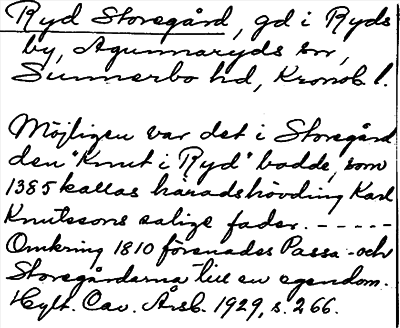 Ryd Storegård, gd i Ryds
by, Agunnaryds sn,
Sunnerbo hd, Kronob. l.
Möjligen var det i Storegård
den "Knut i Ryd" bodde, som
1385 kallas häradshövding Karl
Knutssons salige fader. -----
Omkring 1810 förenades Passa- och
Storegårdarna till en egendom.
Hylt. Cav. Årsb. 1929, s. 266.